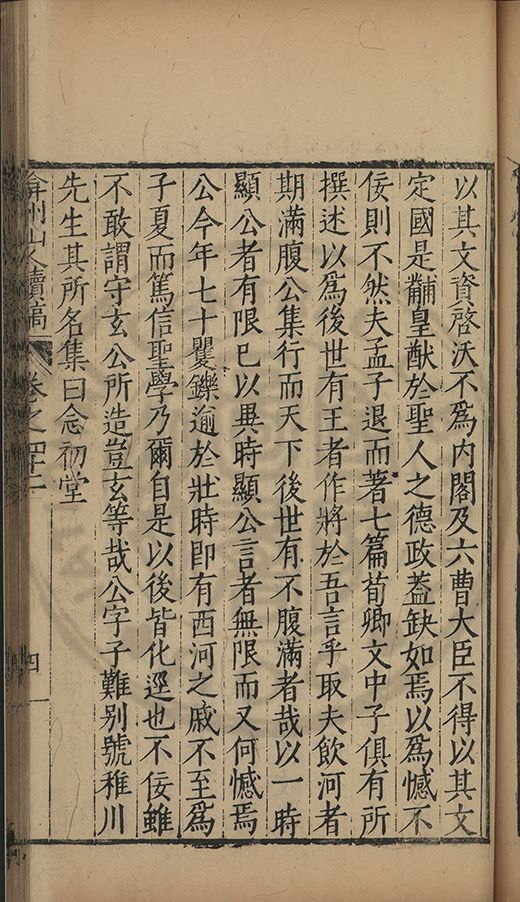 以其文資啓沃不爲內閣及六曹大臣不得以其文
定國是黼皇猷於聖人之德政蓋缺如焉以爲憾不
佞則不然夫孟子退而著七篇荀卿文中子俱有所
撰述以爲後世有王者作將於吾言乎取夫飲河者
期滿腹公集行而天下後世有不腹滿者哉以一時
顯公者有限巳以異時顯公言者無限而又何憾焉
公今年七十矍鑠逾於壯時即有西河之戚不至爲
子夏而篤信聖學乃爾自是以後皆化逕也不佞雖
不敢謂守玄公所造豈玄等哉公字子難别號稚川
先生其所名集曰念初堂
弇州山人續稿 卷之四十二 四